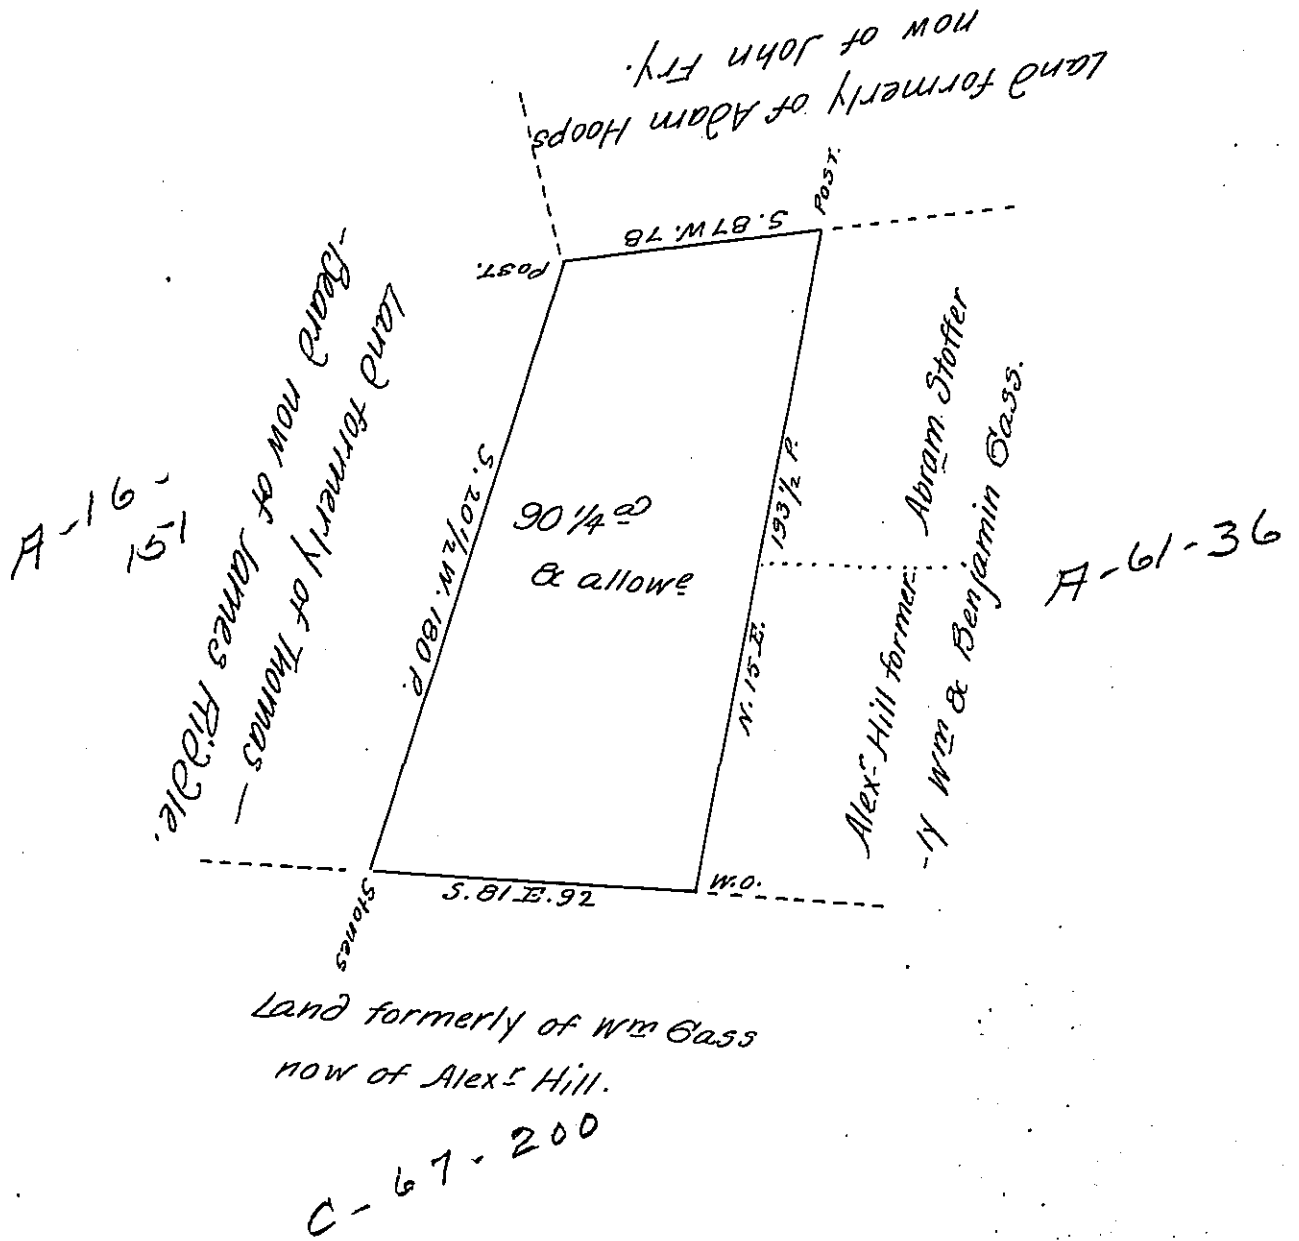 Land formerly of Adam Hoops
now of John Fry.
Post.
S. 87 W. 78
Post.
Land formerly of Thomas —
-Beard now of James Riddle.
A-16-
151
S. 20 1/2 W. 180 P.
90 1/4 ac
& allowe
193 1/2 P.
N. 15 E.
Abram Stoffer
Alexr Hill former-
-ly Wm & Benjamin Gass.
A-61-36
W.O.
S. 81 E. 92
Stones
Land formerly of Wm Gass
now of Alexr Hill.
C-67-200